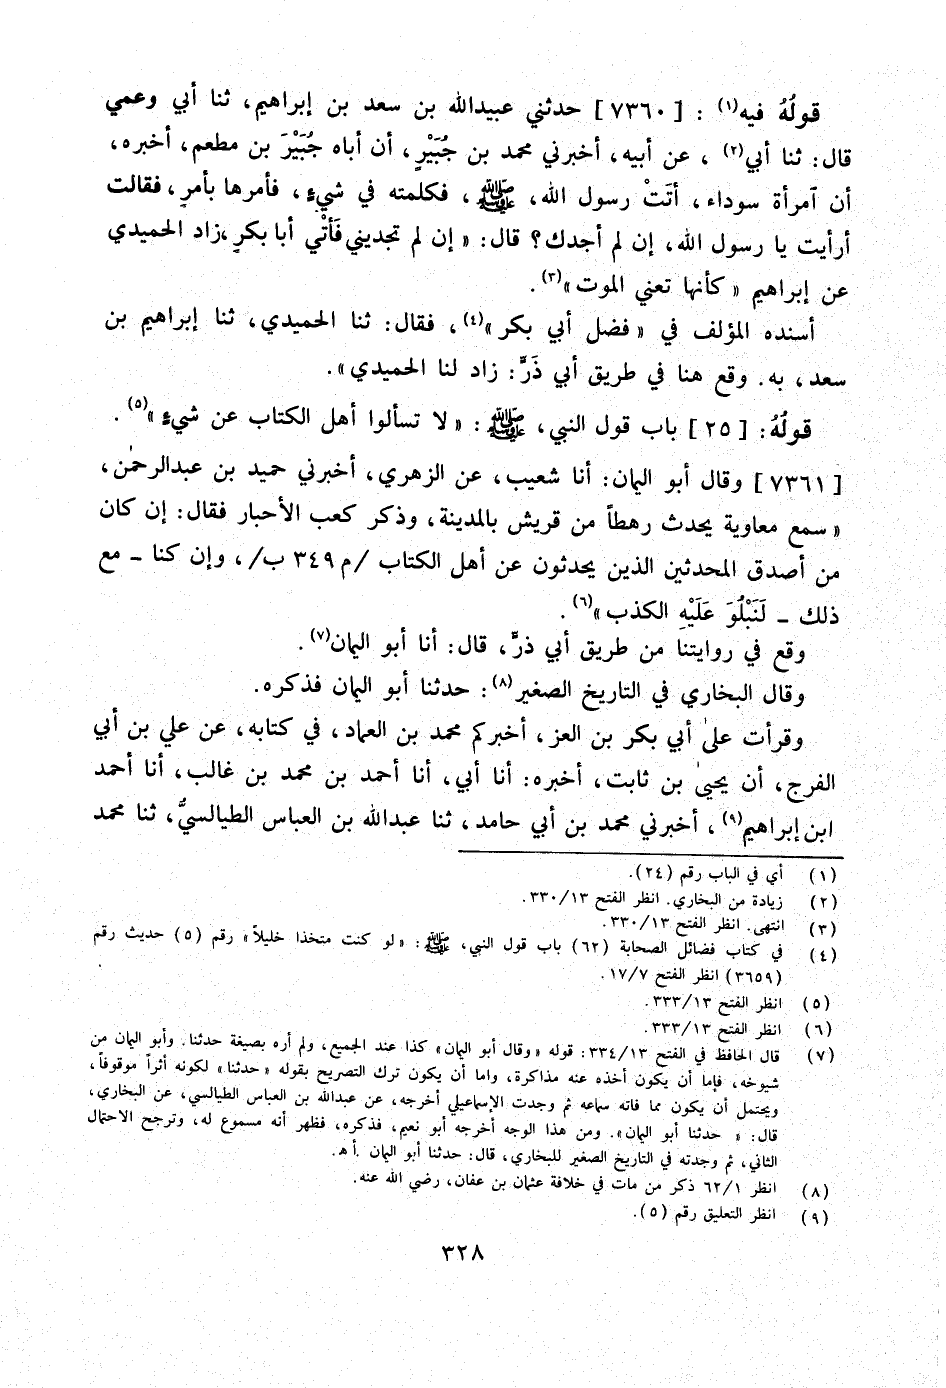 قولُهُ فيه(١) : [ ٧٣٦٠ ] حدثني عبيدالله بن سعد بن إبراهيم، ثنا أبي وعمي
قال: ثنا أبي(٢) ، عن أبيه، أخبرني محمد بن جُبَيْرٍ، أن أباه جُبَيْرَ بن مطعم، أخبره،
أن آمرأة سوداء، أتَتْ رسول الله، ﷺ، فكلمته في شيءٍ، فأمرها بأمرٍ، فقالت
أرأيت يا رسول الله، إن لم أجدك؟ قال: « إن لم تجديني فَأْتي أبا بكرٍ، زاد الحميدي
عن إبراهيم « كأنها تعني الموت »(٣) .
أسنده المؤلف في « فضل أبي بكر »(٤) ، فقال: ثنا الحميدي، ثنا إبراهيم بن
سعد، به. وقع هنا في طريق أبي ذَرٍّ: زاد لنا الحميدي».
قولُهُ: [ ٢٥ ] باب قول النبي، ﷺ : « لا تسألوا أهل الكتاب عن شيءٍ »(٥) .
[ ٧٣٦١ ] وقال أبو اليمان: أنا شعيب، عن الزهري، أخبرني حميد بن عبدالرحمٰن،
« سمع معاوية يحدث رهطاً من قريش بالمدينة، وذكر كعب الأحبار فقال: إن كان
من أصدق المحدثين الذين يحدثون عن أهل الكتاب /م ٣٤٩ ب/، وإن كنا ـ مع
ذلك ـ لَنَبْلُوَ عَلَيْهِ الكذب »(٦) .
وقع في روايتنا من طريق أبي ذرٍّ، قال: أنا أبو اليمان(٧) .
وقال البخاري في التاريخ الصغير(٨) : حدثنا أبو اليمان فذكره.
وقرأت علىٰ أبي بكر بن العز، أخبركم محمد بن العماد، في كتابه، عن علي بن أبي
الفرج، أن يحيىٰ بن ثابت، أخبره: أنا أبي، أنا أحمد بن محمد بن غالب، أنا أحمد
ابن إبراهيم(٩) ، أخبرني محمد بن أبي حامد، ثنا عبدالله بن العباس الطيالسيُّ، ثنا محمد
(١) أي في الباب رقم (٢٤).
(٢) زيادة من البخاري. انظر الفتح ٣٣٠/١٣.
(٣) انتهى. انظر الفتح ٣٣٠/١٣.
(٤) في كتاب فضائل الصحابة (٦٢) باب قول النبي، ﷺ : «لو كنت متخذا خليلاً» رقم (٥) حديث رقم
(٣٦٥٩) انظر الفتح ١٧/٧.
(٥) انظر الفتح ٣٣٣/١٣.
(٦) انظر الفتح ٣٣٣/١٣.
(٧) قال الحافظ في الفتح ٣٣٤/١٣: قوله «وقال أبو اليمان» كذا عند الجميع، ولم أره بصيغة حدثنا. وأبو اليمان من
شيوخه، فإما أن يكون أخذه عنه مذاكرة، واما أن يكون ترك التصريح بقوله «حدثنا» لكونه أثراً موقوفاً،
ويحتمل أن يكون مما فاته سماعه ثم وجدت الإسماعيلي أخرجه، عن عبدالله بن العباس الطيالسي، عن البخاري،
قال: « حدثنا أبو اليمان». ومن هذا الوجه أخرجه أبو نعيم، فذكره، فظهر أنه مسموع له، وترجح الاحتمال
الثاني، ثم وجدته في التاريخ الصغير للبخاري، قال: حدثنا أبو اليمان .أ هـ.
(٨) انظر ٦٢/١ ذكر من مات في خلافة عثمان بن عفان، رضي الله عنه.
(٩) انظر التعليق رقم (٥).
٣٢٨